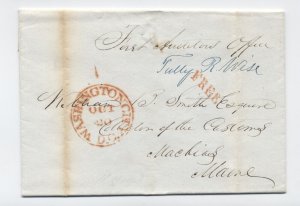 First Auditors Office
Tully R. Wise
FREE
WASHINGTON CITY
OCT
20
D.C.
William B. Smith Esquire
Collector of the Customs
Machias
Maine